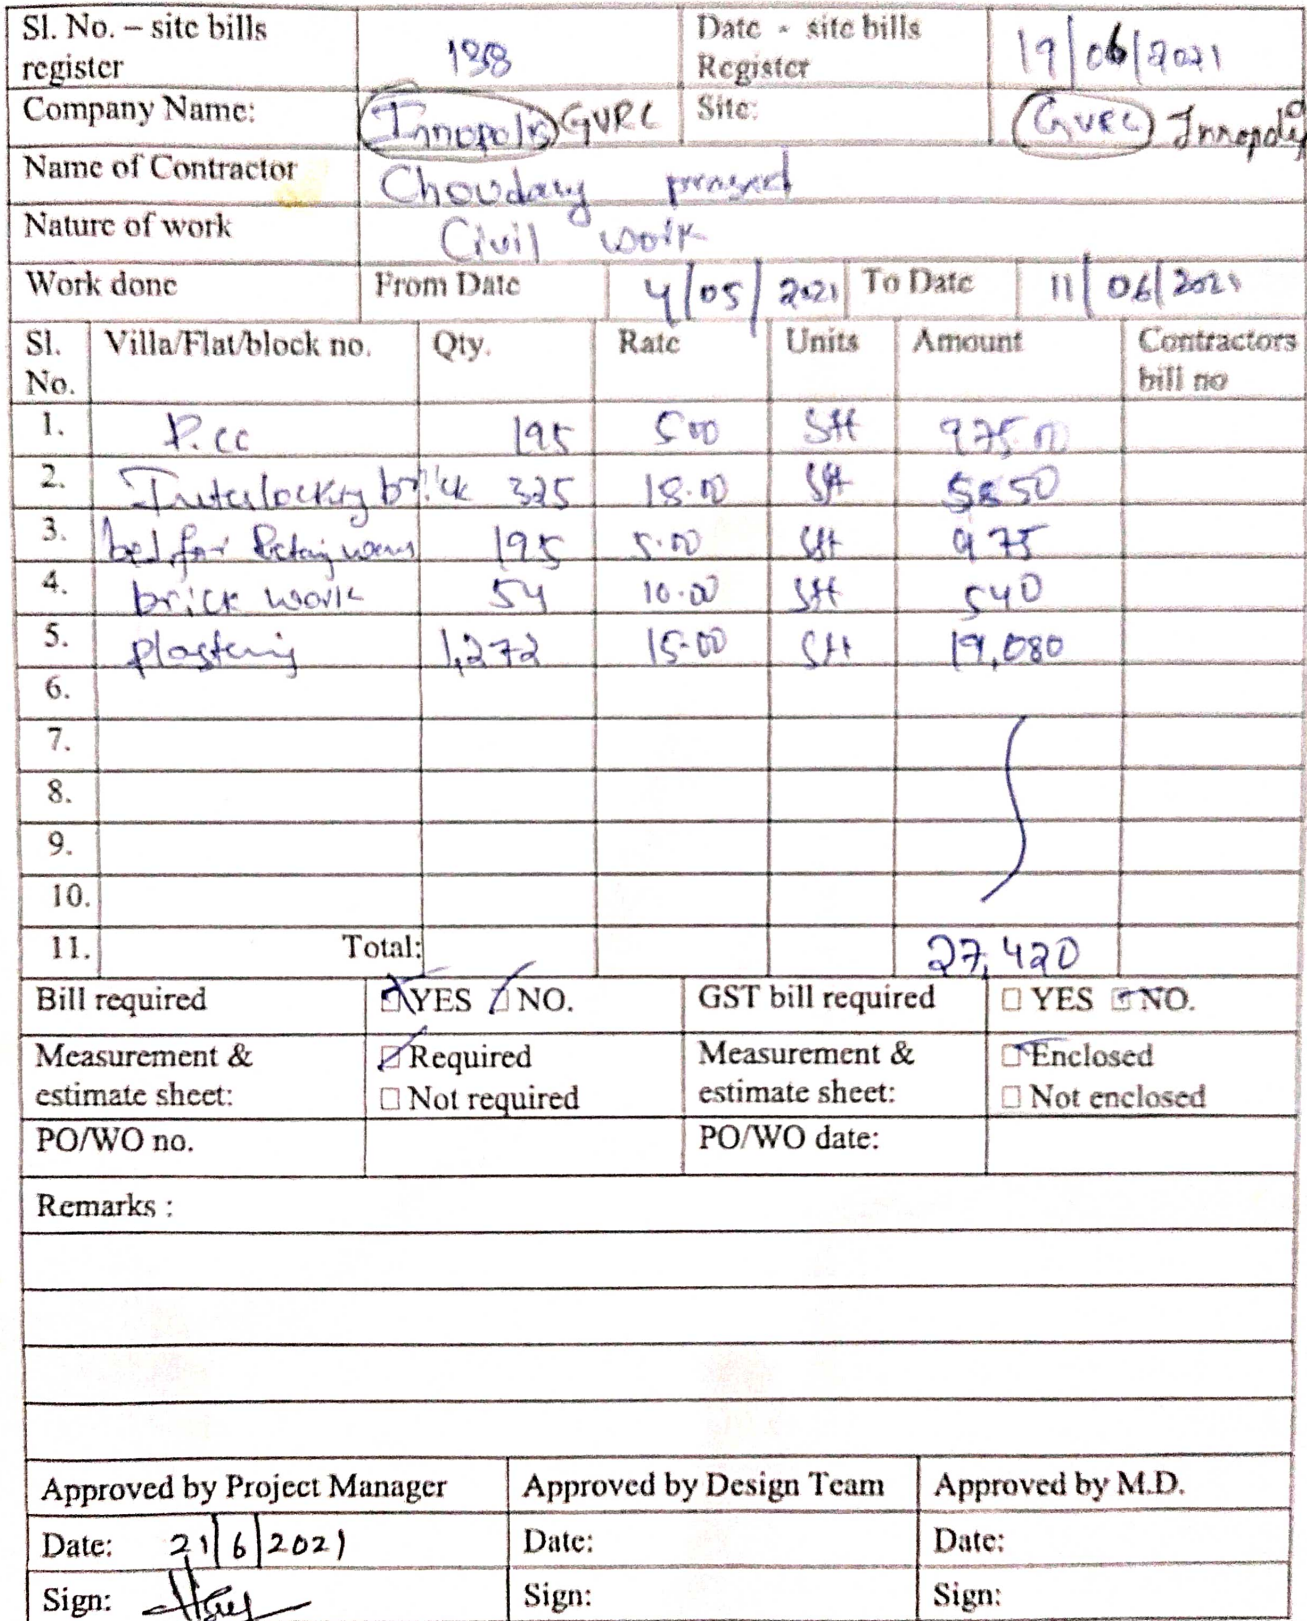 Sl. No. – site bills register 138 Date - site bills Register 19/06/2021
Company Name: Innopolis GVRC Site: GVRC Innopolis
Name of Contractor Choudary prasad
Nature of work Civil work
Work done From Date 4/05/2021 To Date 11/06/2021
Sl. No. Villa/Flat/block no. Qty. Rate Units Amount Contractors bill no
1. P.cc 195 5.00 Sft 975.00
2. Interlocking brick 325 18.00 Sft 5850
3. bed for 195 5.00 Sft 975
4. brick work 54 10.00 Sft 540
5. plastering 1,272 15.00 Sft 19,080
6.
7.
8.
9.
10.
11. Total: 27,420
Bill required YES NO. GST bill required YES NO.
Measurement & estimate sheet: Required Measurement & estimate sheet: Enclosed
Not required Not enclosed
PO/WO no. PO/WO date:
Remarks :
Approved by Project Manager Approved by Design Team Approved by M.D.
Date: 21/6/2021 Date: Date:
Sign: Sign: Sign: